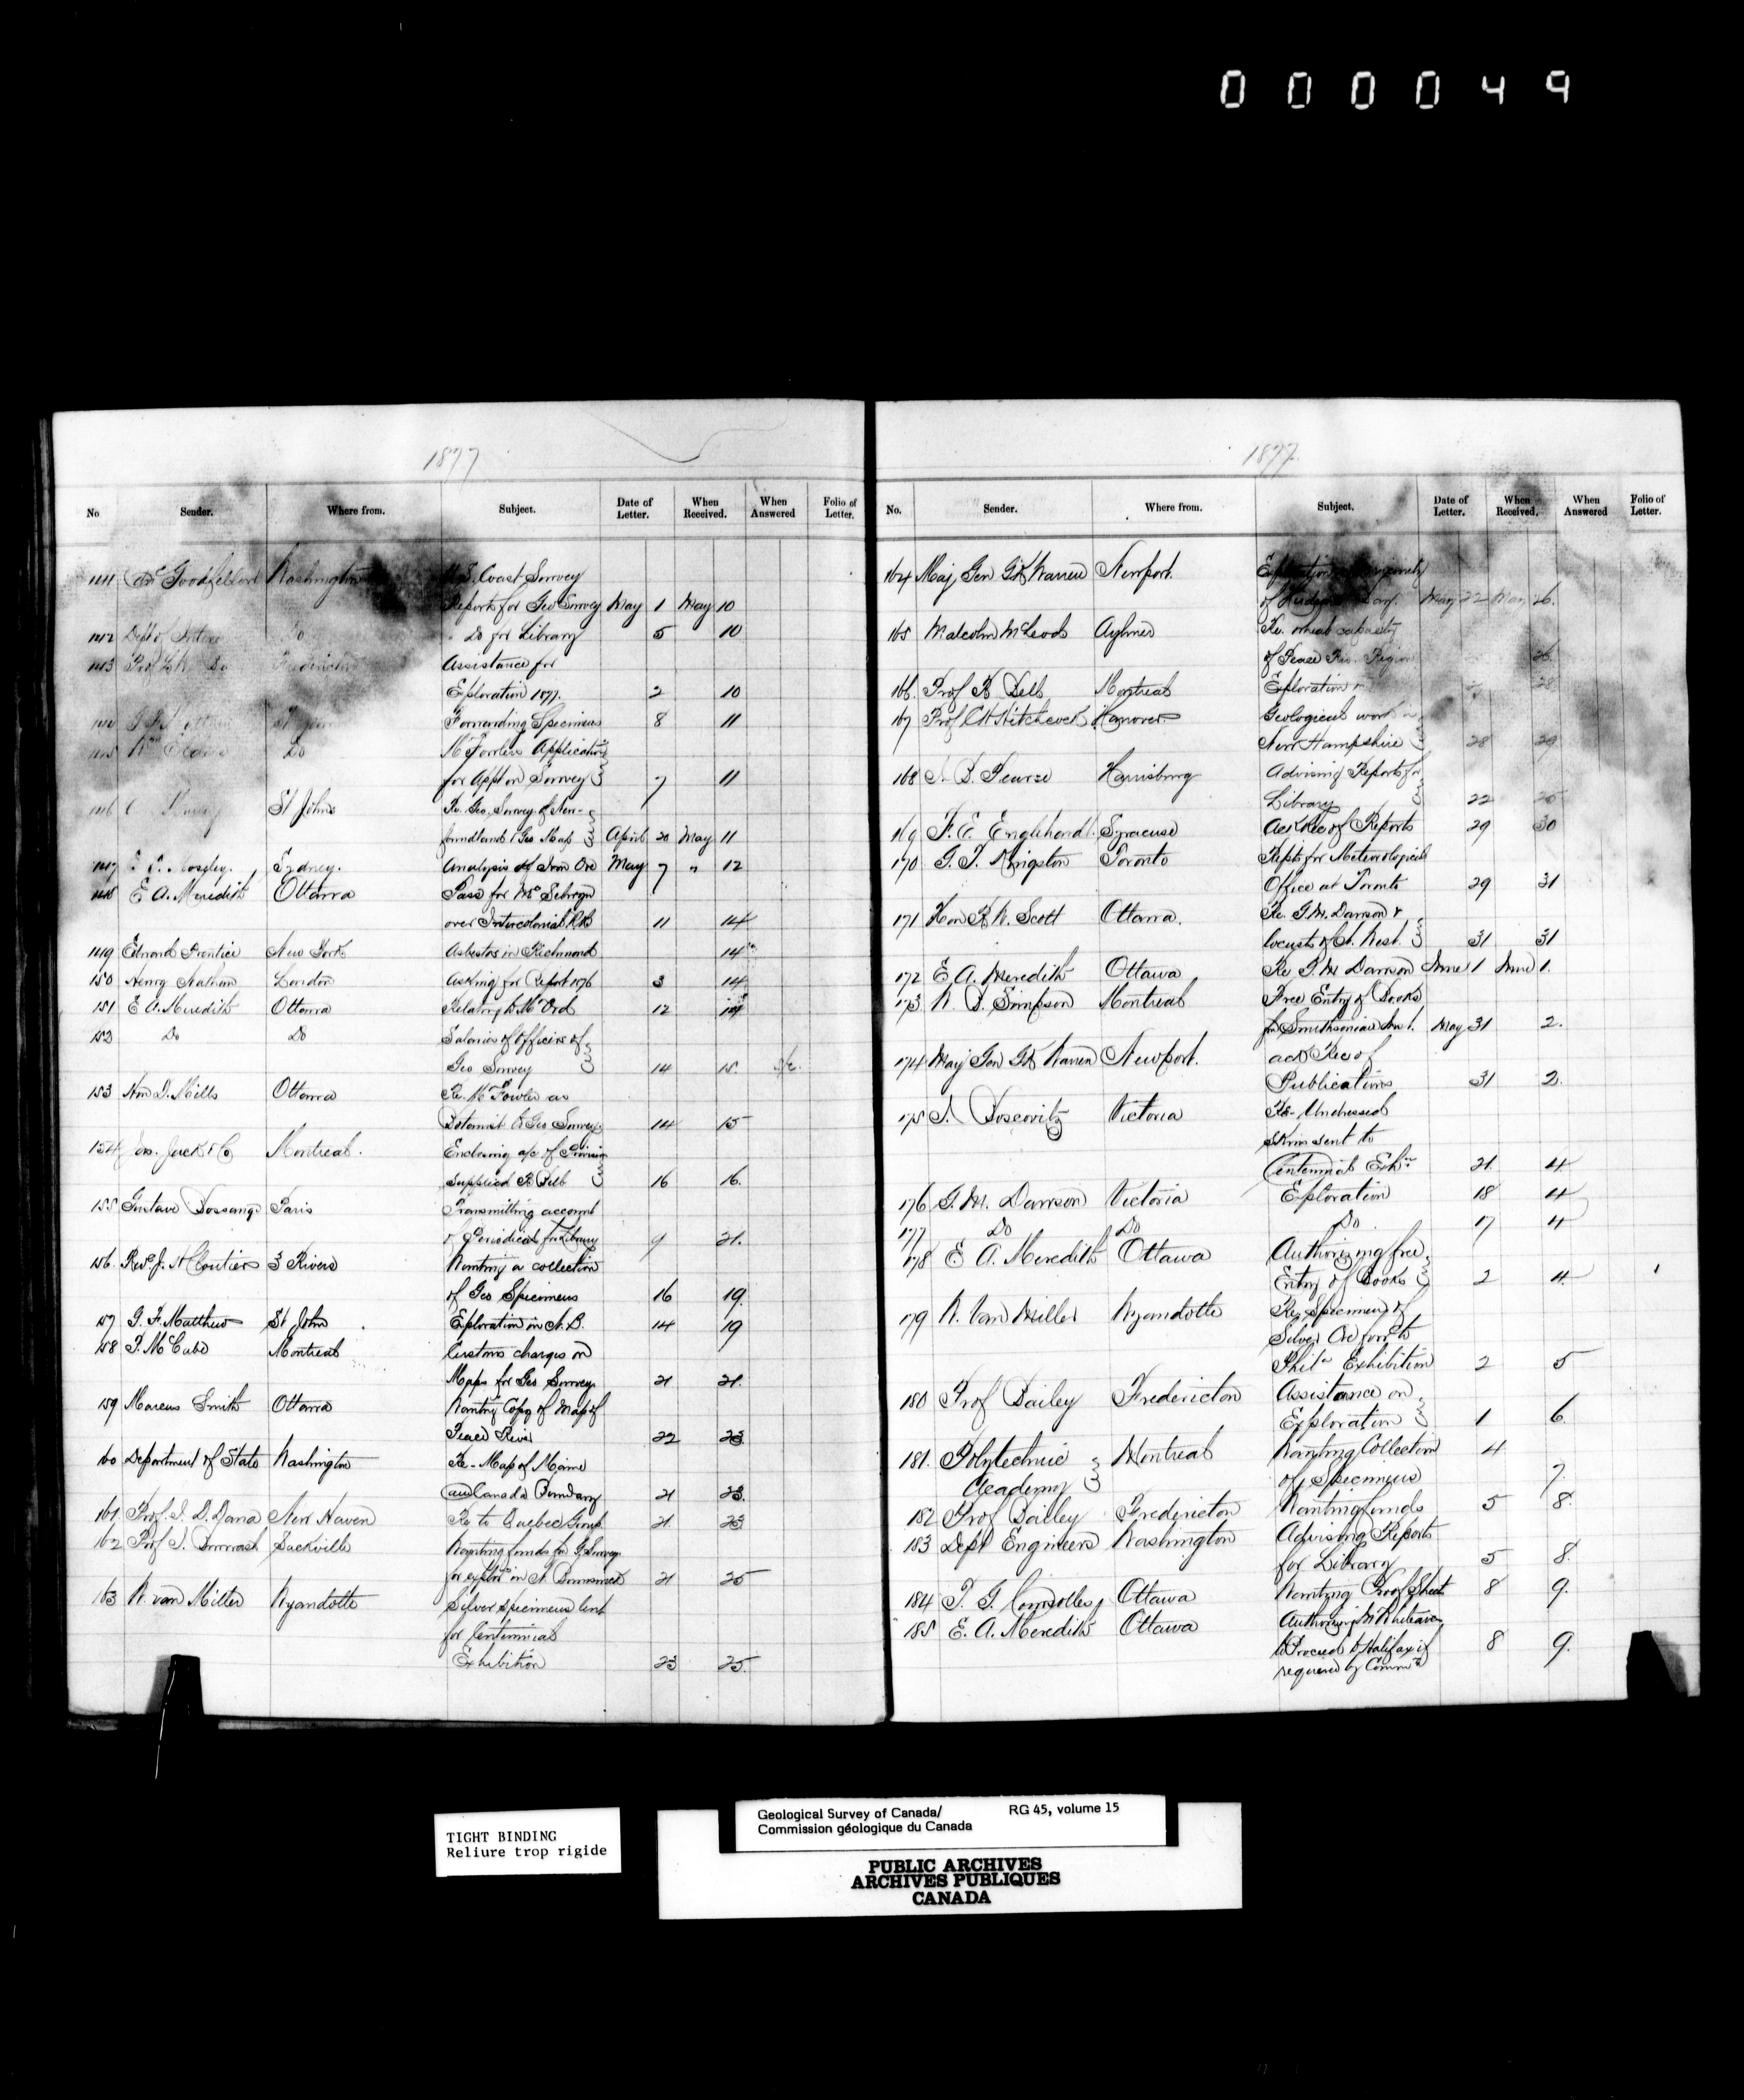 000049
1877
No Sender. Where from. Subject. Date of Letter. When Received. When Answered Folio of Letter.
141 Goodfellow Washington U.S. Coast Survey
Reports for Geo Survey May 1 May 10
142 Dept of Interior Do Do for Library 5 10
143 Prof Assistance for
Exploration 1877. 2 10
144 Forwarding Specimens 8 11
145 Do Mr Fowlers Application
for Appt on Survey 7 11
146 St Johns Re. Geo. Survey of New-
foundland & Geo Map April 20 May 11
147 Mosely. Sydney. Analysis of Iron Ore May 7 " 12
148 E A. Meredith Ottawa Pass for Mr Selwyn
over Intercolonial R.R 11 14
149 Edward Prentice New York Asbestos in Richmond 14
150 Henry Nathan London Asking for Report 1876 3 14
151 E A. Meredith Ottawa Relating to Mr Ord 12 14
152 Do Do Salaries of Officers of
Geo Survey 14 15.
153 Hon D. Mills Ottawa Re. Mr Fowler as
Botanist to Geo Survey. 14 15
154 Jas. Jack & Co Montreal. Enclosing a/c of Provision
supplied R Bell 16 16.
155 Gustave Bossange Paris Transmitting account
of Periodicals for Library 9 21.
156. Revd J. N Cloutier 3 Rivers Wanting a collection
of Geo Specimens 16 19.
157 G. F. Matthew St John Exploration in N.B. 14 19
158 T. McCabe Montreal Customs charges on
Maps for Geo Survey. 21 21.
159 Marcus Smith Ottawa Wanting Copy of Map of
Peace River 22 23.
160 Department of State Washington Re-Map of Maine
and Canada Boundary 21 23.
161 Prof. J. D. Dana New Haven Re to Quebec Group. 21. 23
162 Prof J. Burwash Sackville Wanting funds for G. Survey
for explor in N. Brunswick 21 25
163 W. van Miller Wyandotte Silver specimens lent
for Centennial
Exhibition 23 25.
1877.
No. Sender. Where from. Subject. Date of Letter. When Received. When Answered Folio of Letter.
164 Maj Gen G K Warren Newport. Exploration
of Hudson Bay. May 22 May 26.
165 Malcolm McLeod Aylmer Re. wheat capacity
of Peace Riv. Region 26.
166. Prof R Bell Montreal Exploration 28
167 Prof C H Hitchcock Hanover Geological work in
New Hampshire 28 29
168 J. B. Pearse Harrisburg Advising Reports for
Library 22 25
169 F. E. Englehardt. Syracuse Ack Rec of Reports 29 30
170. G. T. Kingston Toronto Repts for Meteorological
Office at Toronto 29 31
171 Hon R. W. Scott Ottawa. Re. G. M. Dawson &
locusts of N. West. 31 31
172 E A. Meredith Ottawa Re G M Dawson June 1 June 1.
173 W. B. Simpson Montreal Free Entry of Books
for Smithsonian Inst. May 31 2.
174 Maj Gen G K Warren Newport. ack Rec of
Publications 31 2.
175 J. Boscovitz Victoria Re- Undressed
skins sent to
Centennial Exhn 21. 4
176 G. M. Dawson Victoria Exploration 18 4
177 Do Do Do. 17 4
178 E A. Meredith Ottawa Authorizing free
Entry of Books 2 4.
179 W. Van Miller Wyandotte Re. Specimens of
Silver Ore for
Phila Exhibition 2 5
180 Prof Bailey Fredericton Assistance on
Exploration 1 6.
181. Polytechnic Montreal Wanting Collection 4
Academy of Specimens 7.
182 Prof Bailey Fredericton Wanting funds 5 8.
183 Dept Engineers Washington Advising Reports
for Library 5 8.
184 T. G. Ottawa Wanting Proof Sheet 8 9.
185 E. A. Meredith Ottawa Authorizing Mr Whiteaves
to Proceed to Halifax if 8 9.
required by Comm
TIGHT BINDING
Reliure trop rigide
Geological Survey of Canada/ RG 45, volume 15
Commission géologique du Canada
PUBLIC ARCHIVES
ARCHIVES PUBLIQUES
CANADA